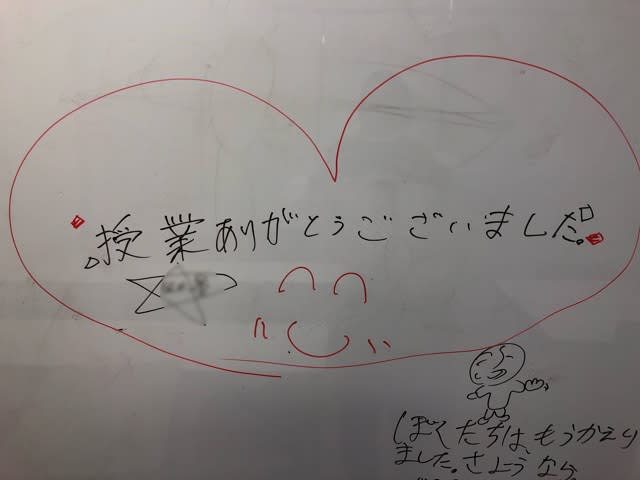 授業ありがとうございました。
ぼくたちは、もうかえり
ました。さようなら